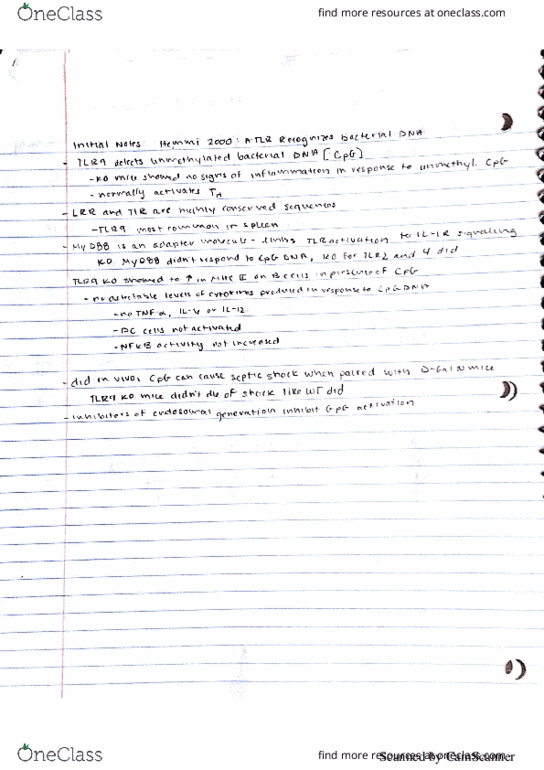 OneClass
find more resources at oneclass.com
Initial Notes: Hemmi 2000: A TLR Recognizes bacterial DNA
- TLR9 detects unmethylated bacterial DNA [CpG]
- KO mice showed no signs of inflammation in response to unmethyl. CpG
- normally activates TH
- LRR and TIR are highly conserved sequences
- TLR9 most common in spleen
- MyD88 is an adapter molecule - links TLR activation to IL-1R signaling
KO MyD88 didn't respond to CpG DNA, KO for TLR2 and 4 did
TLR9 KO showed no ↑ in MHC II on B cells in presence of CpG
- no detectable levels of cytokines produced in response to CpG DNA
- no TNF-α, IL-6 or IL-12
- DC cells not activated
- NFκB activity not increased
- did in vivo: CpG can cause septic shock when paired with D-GalN mice
TLR9 KO mice didn't die of shock like WT did
- inhibitors of endosomal generation inhibit CpG activation
OneClass
find more resources at oneclass.com
Scanned by CamScanner